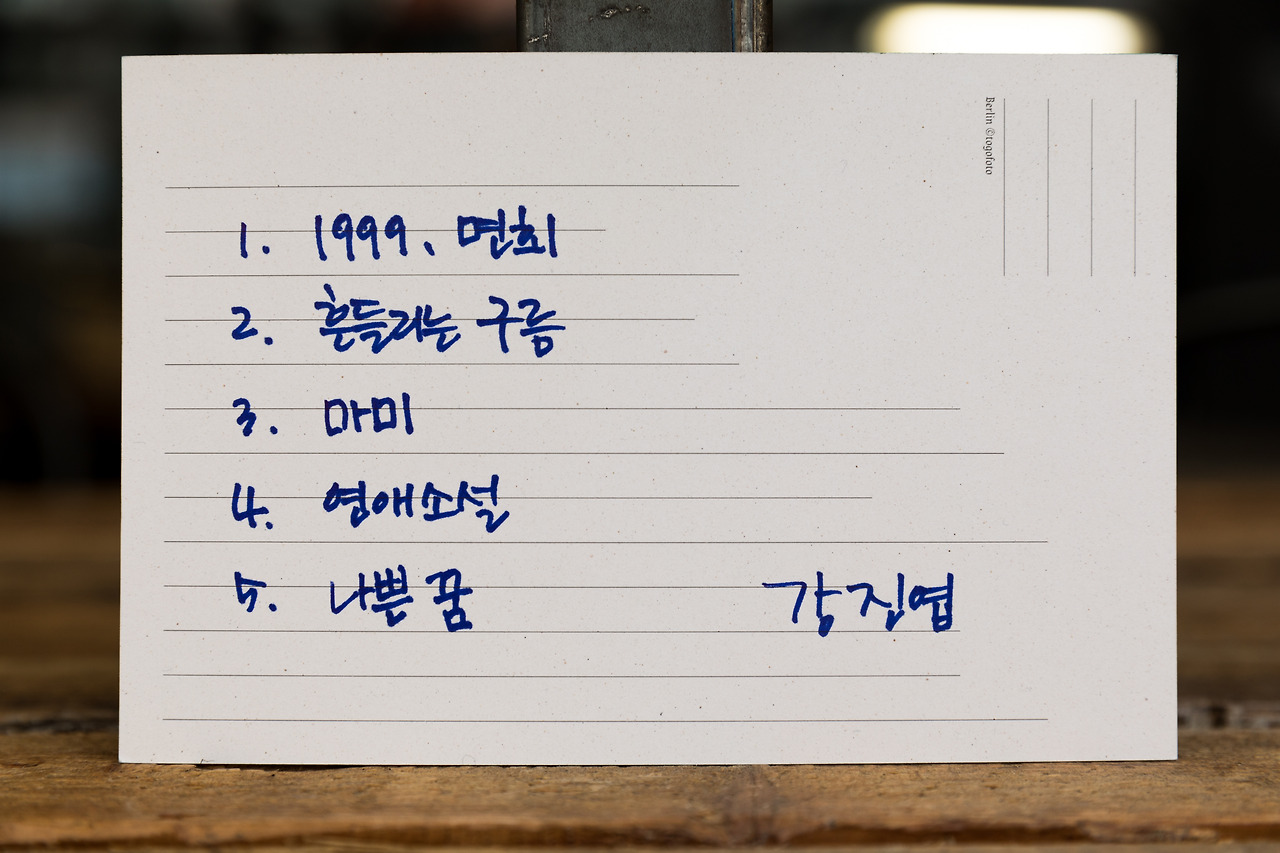 Berlin ©togofoto
1. 1999, 면회
2. 흔들리는 구름
3. 마미
4. 영애소설
5. 나쁜 꿈
강진엽